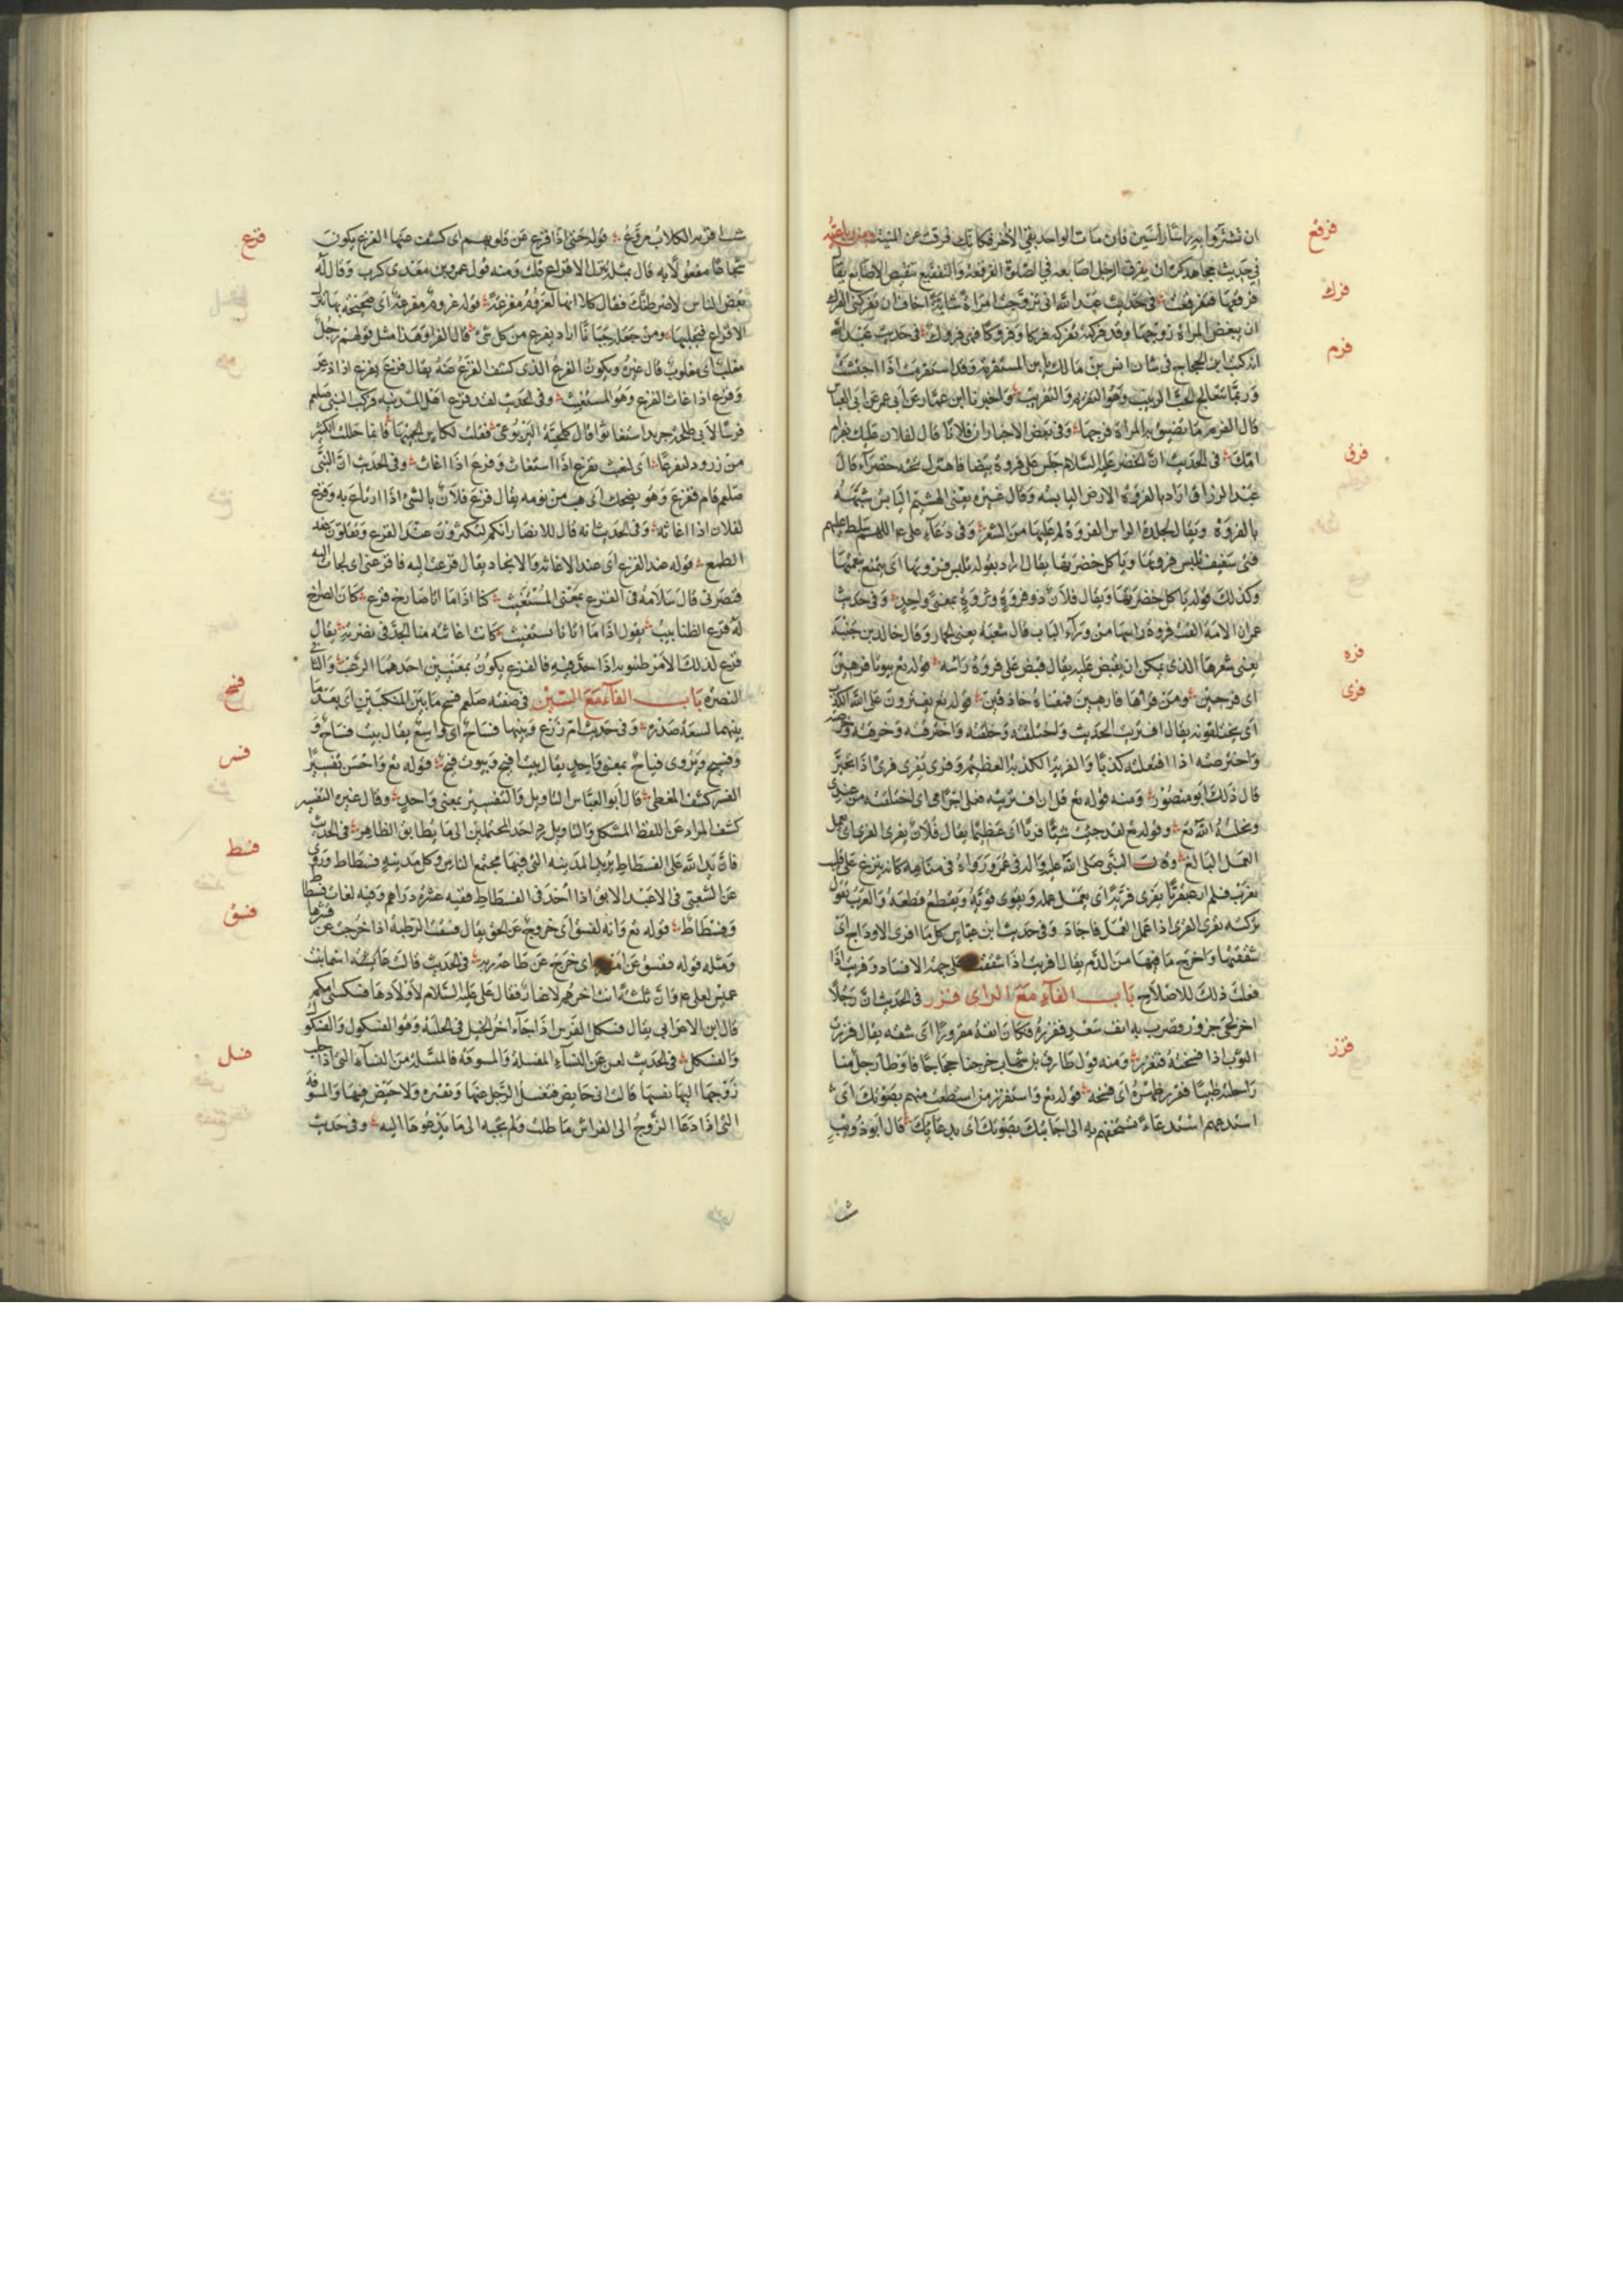 فرقع
ان تشتروا به راسا راسين فان مات الواحد بقي الاخر فكانك فرقت عن المنية
في حديث مجاهد كره ان يفرقع الرجل اصابعه في الصلوة الفرقعة والتفقيع تنقيض الاصابع يقال
فرك
فرقعها فتفرقعت في حديث عبد الله اني تزوجت امراة شابة اخاف ان تفركني الفرك
ان يبغض المراة زوجها وقد فركته تفركه فركا وفروكا فهي فروك في حديث عبد الملك
فرم
انه كتب الى الحجاج في شان انس بن مالك يابن المستفرمة وقد استفرمت اذا احتشت
قال الفرم ما تضيق به المراة فرجها وفي بعض الاخبار ان فلانا قال لفلان عليك بفرام
فرو
امك في الحديث ان الخضر عليه السلام جلس على فروة بيضا فاهتزت تحته خضراء قال
عبد الرزاق اراد بالفروة الارض اليابسة وقال غيره يعني الهشيم اليابس شبهه
بالفروة ويقال لجلدة الراس الفروة لما عليها من الشعر وفي دعاء علي ع اللهم سلط عليهم
فتى ثقيف يلبس فروتها وياكل خضرتها يقال اراد بقوله يلبس فروتها اي يتمتع بنعمتها
وكذلك قوله ياكل خضرتها ويقال فلان ذو فروة وثروة بمعنى واحد وفي حديث
عمران الامة القت فروة راسها من وراء الباب قال شعبة يعني الخمار وقال خالد بن جنبة
فره
يعني شعرها الذي يمكن ان يقبض عليه يقال قبض على فروة راسه قوله تع بيوتا فرهين
فرى
اي فرحين ومن قراها فارهين فمعناه حاذقين قوله تع يفترون على الله الكذب
اي يختلقونه يقال افتريت الحديث واختلقته وخلقته واخترقته وخرقته
واخترصته اذا افتعلته كذبا والفرية الكذبة العظيمة وفرى يفرى فرى اذا تحير
قال ذلك ابو منصور ومنه قوله تع قل ان افتريته فعلي اجرامي اي اختلقته من عندي
ونحلته الله تع وقوله تع لقد جئت شيئا فريا اي عظيما يقال فلان يفري الفري اي يعمل
العمل البالغ وقال النبي صلى الله عليه واله في عمر ورواه في منامه كانه ينزع على قليب
بغرب فلم ار عبقريا يفري فريه اي يعمل عمله ويقوى قوته ويقطع قطعه والعرب تقول
تركته يفري الفري اذا عمل العمل فاجاد وفي حديث ابن عباس كل ما افرى الاوداج اي
شققتها واخرج ما فيها من الدم يقال افريت اذا شققت على جهة الافساد وفريت اذا
فعلت ذلك للاصلاح باب الفاء مع الزاى فزر في الحديث ان رجلا
اخذ لحى جزور فضرب به انف سعد ففزره فكان انفه مفزورا اي شقه يقال فزرت
فزز
الثوب اذا فسخته فتفزر ومنه قول طارق بن شهاب خرجنا حجاجا فاوطا رجل منا
راحلته ظبيا ففزر ظهره اي فسخه قوله تع واستفزز من استطعت منهم بصوتك اي
استدعهم استدعاء تستخفهم به الى اجابتك بصوتك اي بدعائك قال ابو ذويب
فزع
شب افزته الكلاب مروع قوله حتى اذا فزع عن قلوبهم اي كشف عنها الفزع يكون
شجاعا مفعولا به قال بمثله تنزل الافزاع قلت ومنه قول عمرو بن معدي كرب وقال له
بعض الناس لاضرطنك فقال كلا انها لعزوم مفزعة قوله عزوم مفزعة اي صحيحة بها تنزل
الافزاع فتجليها ومن جعله جبانا اراد يفزع من كل شئ قال الفرا وهذا مثل قولهم رجل
مغلب اي مغلوب قال غيره ويكون الفزع الذي كشف الفزع عنه يقال فزع يفزع اذا ذعر
وفزع اذا غاث الفزع وهو المستغيث وفي الحديث لقد فزع اهل المدينة فركب النبي صلعم
فرسا لابي طلحة اي استغاثوا قال كلحبة اليربوعي فقلت لكاس الجميها فانما حللت الكثيب
من زرود لنفزعا اي لنغيث يفزع اذا استغاث وفزع اذا اغاث وفي الحديث ان النبي
صلعم نام ففزع وهو يضحك اي هب من نومه يقال فزع فلان بالشئ اذا ارتاع به وفزع
لفلان اذا اغاثه وفي الحديث انه قال للانصار انكم لتكثرون عند الفزع وتقلون عند
الطمع قوله عند الفزع اي عند الاغاثة والانجاد يقال فزعت اليه فافزعني اي لجات اليه
فنصرني قال سلامة في الفزع بمعنى المستغيث كنا اذا ما اتانا صارخ فزع كان الصراخ
له قرع الظنابيب يقول اذا ما اتانا مستغيث كانت اغاثته منا الجد في نصرته يقال
قرع لذلك الامر ظنبوبه اذا جد فيه فالفزع يكون بمعنيين احدهما الرعب والثاني
فسح
النصرة باب الفاء مع السين في صفته صلعم فسيح ما بين المنكبين اي بعيد ما
بينهما لسعة صدره وفي حديث ام زرع وبيتها فساح اي واسع يقال بيت فساح و
فسر
وفسيح ويروى فياح بمعنى واحد يقال بيت افيح وبيوت فيح قوله تع واحسن تفسيرا
الفسر كشف المغطى قال ابو العباس التاويل والتفسير بمعنى واحد وقال غيره التفسير
كشف المراد عن اللفظ المشكل والتاويل رد احد المحتملين الى ما يطابق الظاهر في الحديث
فسط
فان يد الله على الفسطاط يريد المدينة التي فيها مجتمع الناس وكل مدينة فسطاط وروى
عن الشعبي في العبد الابق اذا اخذ في الفسطاط ففيه عشرة دراهم وفيه لغات فسطاط
فسق
وفستاط قوله تع وانه لفسق اي خروج عن الحق يقال فسقت الرطبة اذا خرجت عن قشرها
ومثله قوله ففسق عن امر اي خرج عن طاعة ربه في الحديث قالت عايشة اسما بنت
عميس لعلي ع ان ثلثة انت اخرهم لاخيار فقال علي عليه السلام لاولادها فسكلتني امكم
قال ابن الاعرابي يقال فسكل الفرس اذا جاء اخر الخيل في الحلبة وهو الفسكول والفسكو
فسل
والفسكل في الحديث لعن من النساء المفسلة والمسوفة فالمفسلة من النساء التي اذا طلب
زوجها اليها نفسها قالت اني حايض فتفسل الرجل عنها وتفتره ولا حيض فيها والمسوفة
التي اذا دعاها الزوج الى الفراش ما طلت ولم تجبه الى ما يدعوها اليه وفي حديث